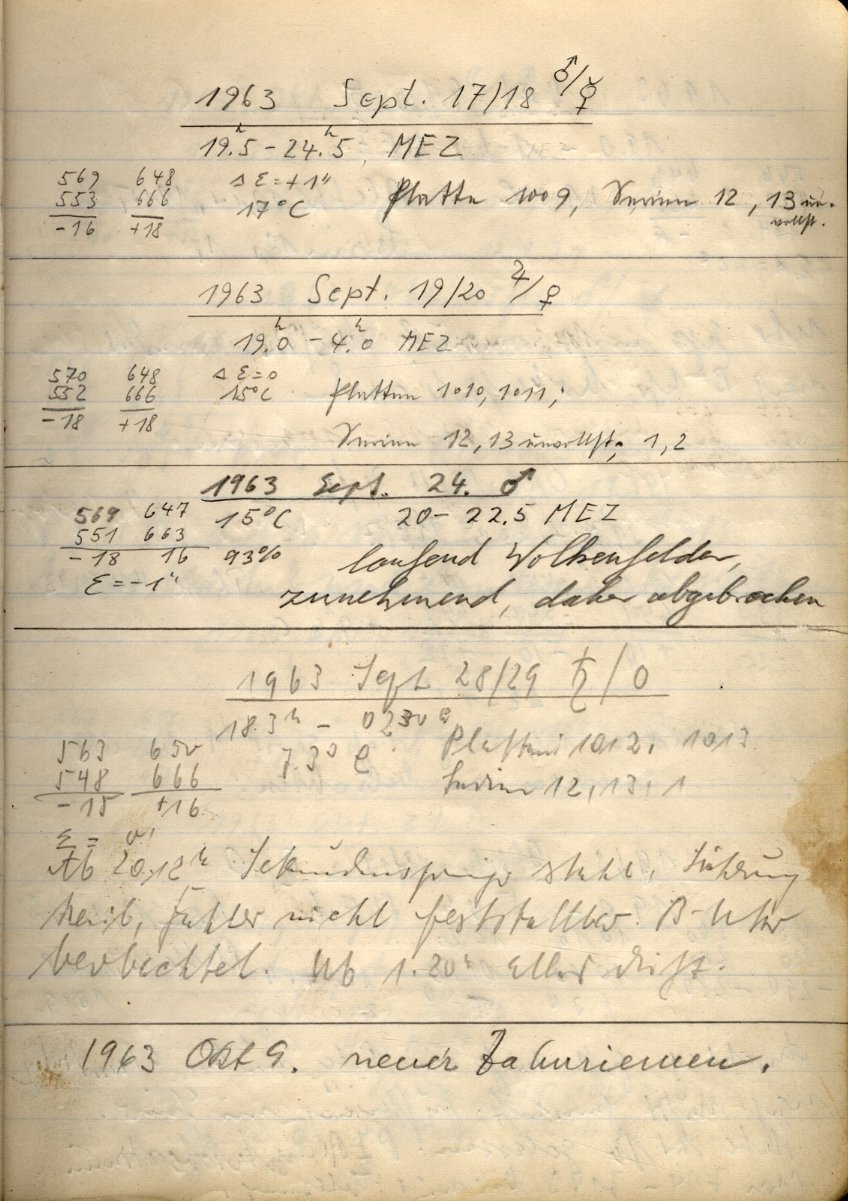 1963 Sept. 17/18 ♂/☿
19.ʰ5 – 24.ʰ5, MEZ
569 648 Δ Σ = +1" Platte 1009, Serien 12, 13 un-
553 666 17°C vollst.
-16 +18
1963 Sept. 19/20 ♃/♀
19.ʰ0 – 4.ʰ0 MEZ
570 648 Δ Σ = 0
552 666 15°C Platten 1010, 1011;
-18 +18
Serien 12, 13 unvollst., 1, 2
1963 Sept. 24. ♂
569 647 15°C 20 – 22.5 MEZ
551 663
-18 16 93% laufend Wolkenfelder,
Σ = -1" zunehmend, daher abgebrochen
1963 Sept 28/29 ♄/☉
18.3ʰ –
563 650 7.3° C Platten 1012, 1013
548 666 Serien 12, 13, 1
-15 +16
Σ = 0"
Ab 20,12ʰ steht,
Fehler nicht feststellbar. B-Uhr
beobachtet. Ab 1.20ʰ Alles
1963 Okt 9. neuer